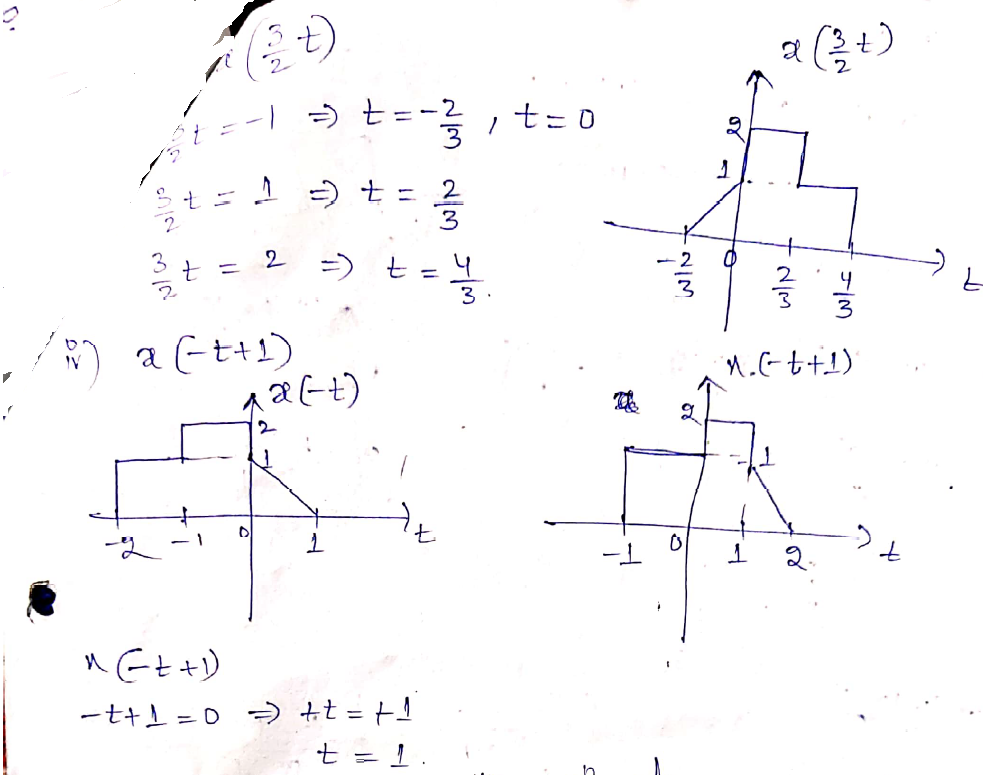 x(3/2 t)
3/2 t = -1 ⇒ t = -2/3 , t = 0
3/2 t = 1 ⇒ t = 2/3
3/2 t = 2 ⇒ t = 4/3.
x(3/2 t)
2
1
-2/3 0 2/3 4/3 t
iv) x(-t+1)
x(-t)
2
1
-2 -1 0 1 t
x(-t+1)
2
1
-1 0 1 2 t
x(-t+1)
-t+1 = 0 ⇒ +t = +1
t = 1.